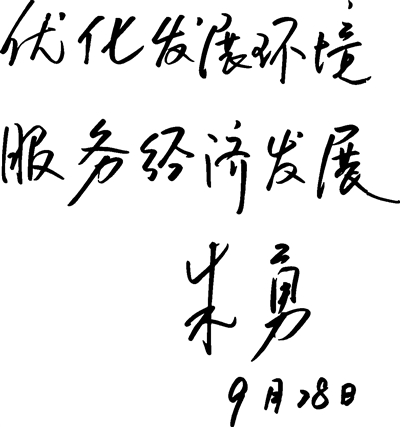 优化发展环境
服务经济发展
朱勇
9月28日